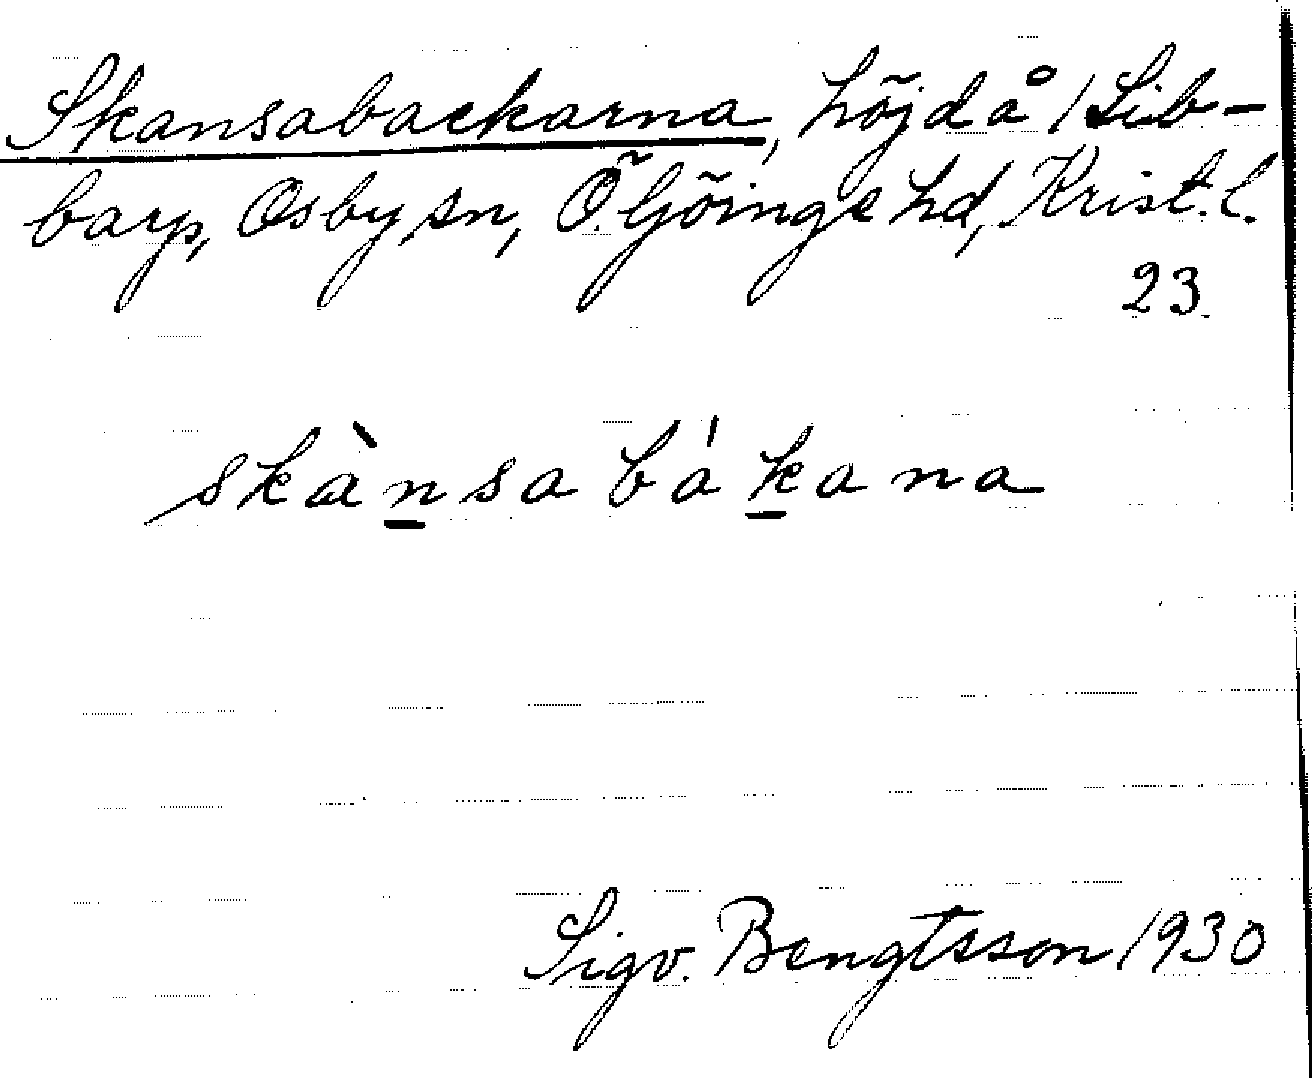 Skansabackarna, höjd å 1 Lib-
barp, Osby sn, Ö. Göinge hd, Krist. l.
23
skànsa bákana
Sigv. Bengtsson 1930